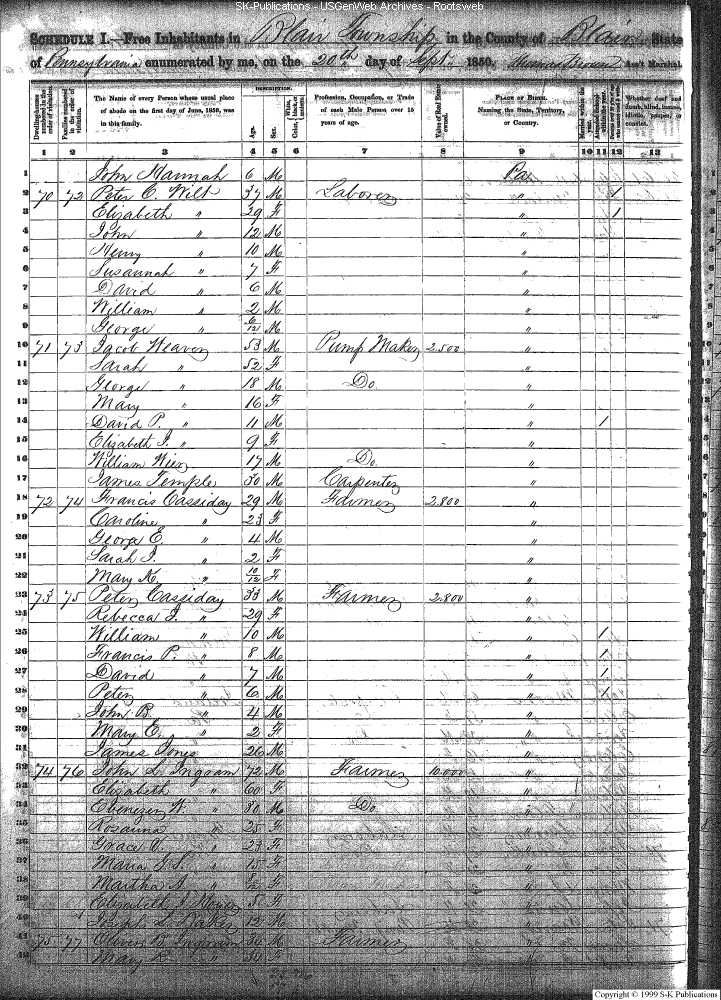 SK-Publications - USGenWeb Archives - Rootsweb
SCHEDULE I.—Free Inhabitants in Blair Township in the County of Blair State
of Pennsylvania enumerated by me, on the 20th day of Sept. 1850. Ass't Marshal.
DESCRIPTION.
Dwelling-houses numbered in the order of visitation.
Families numbered in the order of visitation.
The Name of every Person whose usual place of abode on the first day of June, 1850, was in this family.
Age.
Sex.
Profession, Occupation, or Trade of each Male Person over 15 years of age.
Value of Real Estate owned.
PLACE OF BIRTH. Naming the State, Territory, or Country.
Whether deaf and dumb, blind, insane, idiotic, pauper, or convict.
1 2 3 4 5 6 7 8 9 10 11 12 13
1 John Hannah 6 M Pa.
2 70 72 Peter C. Wilt 37 M Laborer " 1
3 Elizabeth " 29 F " 1
4 John " 12 M "
5 Henry " 10 M "
6 Susannah " 7 F "
7 David " 6 M "
8 William " 2 M "
9 George " 6/12 M "
10 71 73 Jacob Weaver 53 M Pump Maker 2.500 "
11 Sarah " 52 F "
12 George " 18 M Do. "
13 Mary " 16 F "
14 David P. " 11 M " 1
15 Elizabeth J. " 9 F "
16 William 17 M Do. "
17 James Temple 30 M Carpenter "
18 72 74 Francis Cassiday 29 M Farmer 2.800 "
19 Caroline " 23 F "
20 George E. " 4 M "
21 Sarah J. " 2 F "
22 Mary K. " 10/12 F "
23 73 75 Peter Cassiday 33 M Farmer 2.800 "
24 Rebecca J. " 29 F "
25 William " 10 M " 1
26 Francis P. " 8 M " 1
27 David " 7 M " 1
28 Peter " 6 M " 1
29 John B. " 4 M "
30 Mary E. " 2 F "
31 James Jones 26 M "
32 74 76 John L. Ingram 72 M Farmer 10.000 "
33 Elizabeth " 60 F "
34 Ebenezer W. " 30 M Do. "
35 Rosanna " 25 F "
36 Grace V. " 23 F "
37 Maria G.S. " 15 F "
38 Martha A. " F "
39 Elizabeth J. F "
40 Joseph L. Baker 12 M "
41 75 77 Oliver B. Ingram 34 M Farmer "
42 Mary R. " 34 F "
Copyright © 1999 S-K Publications